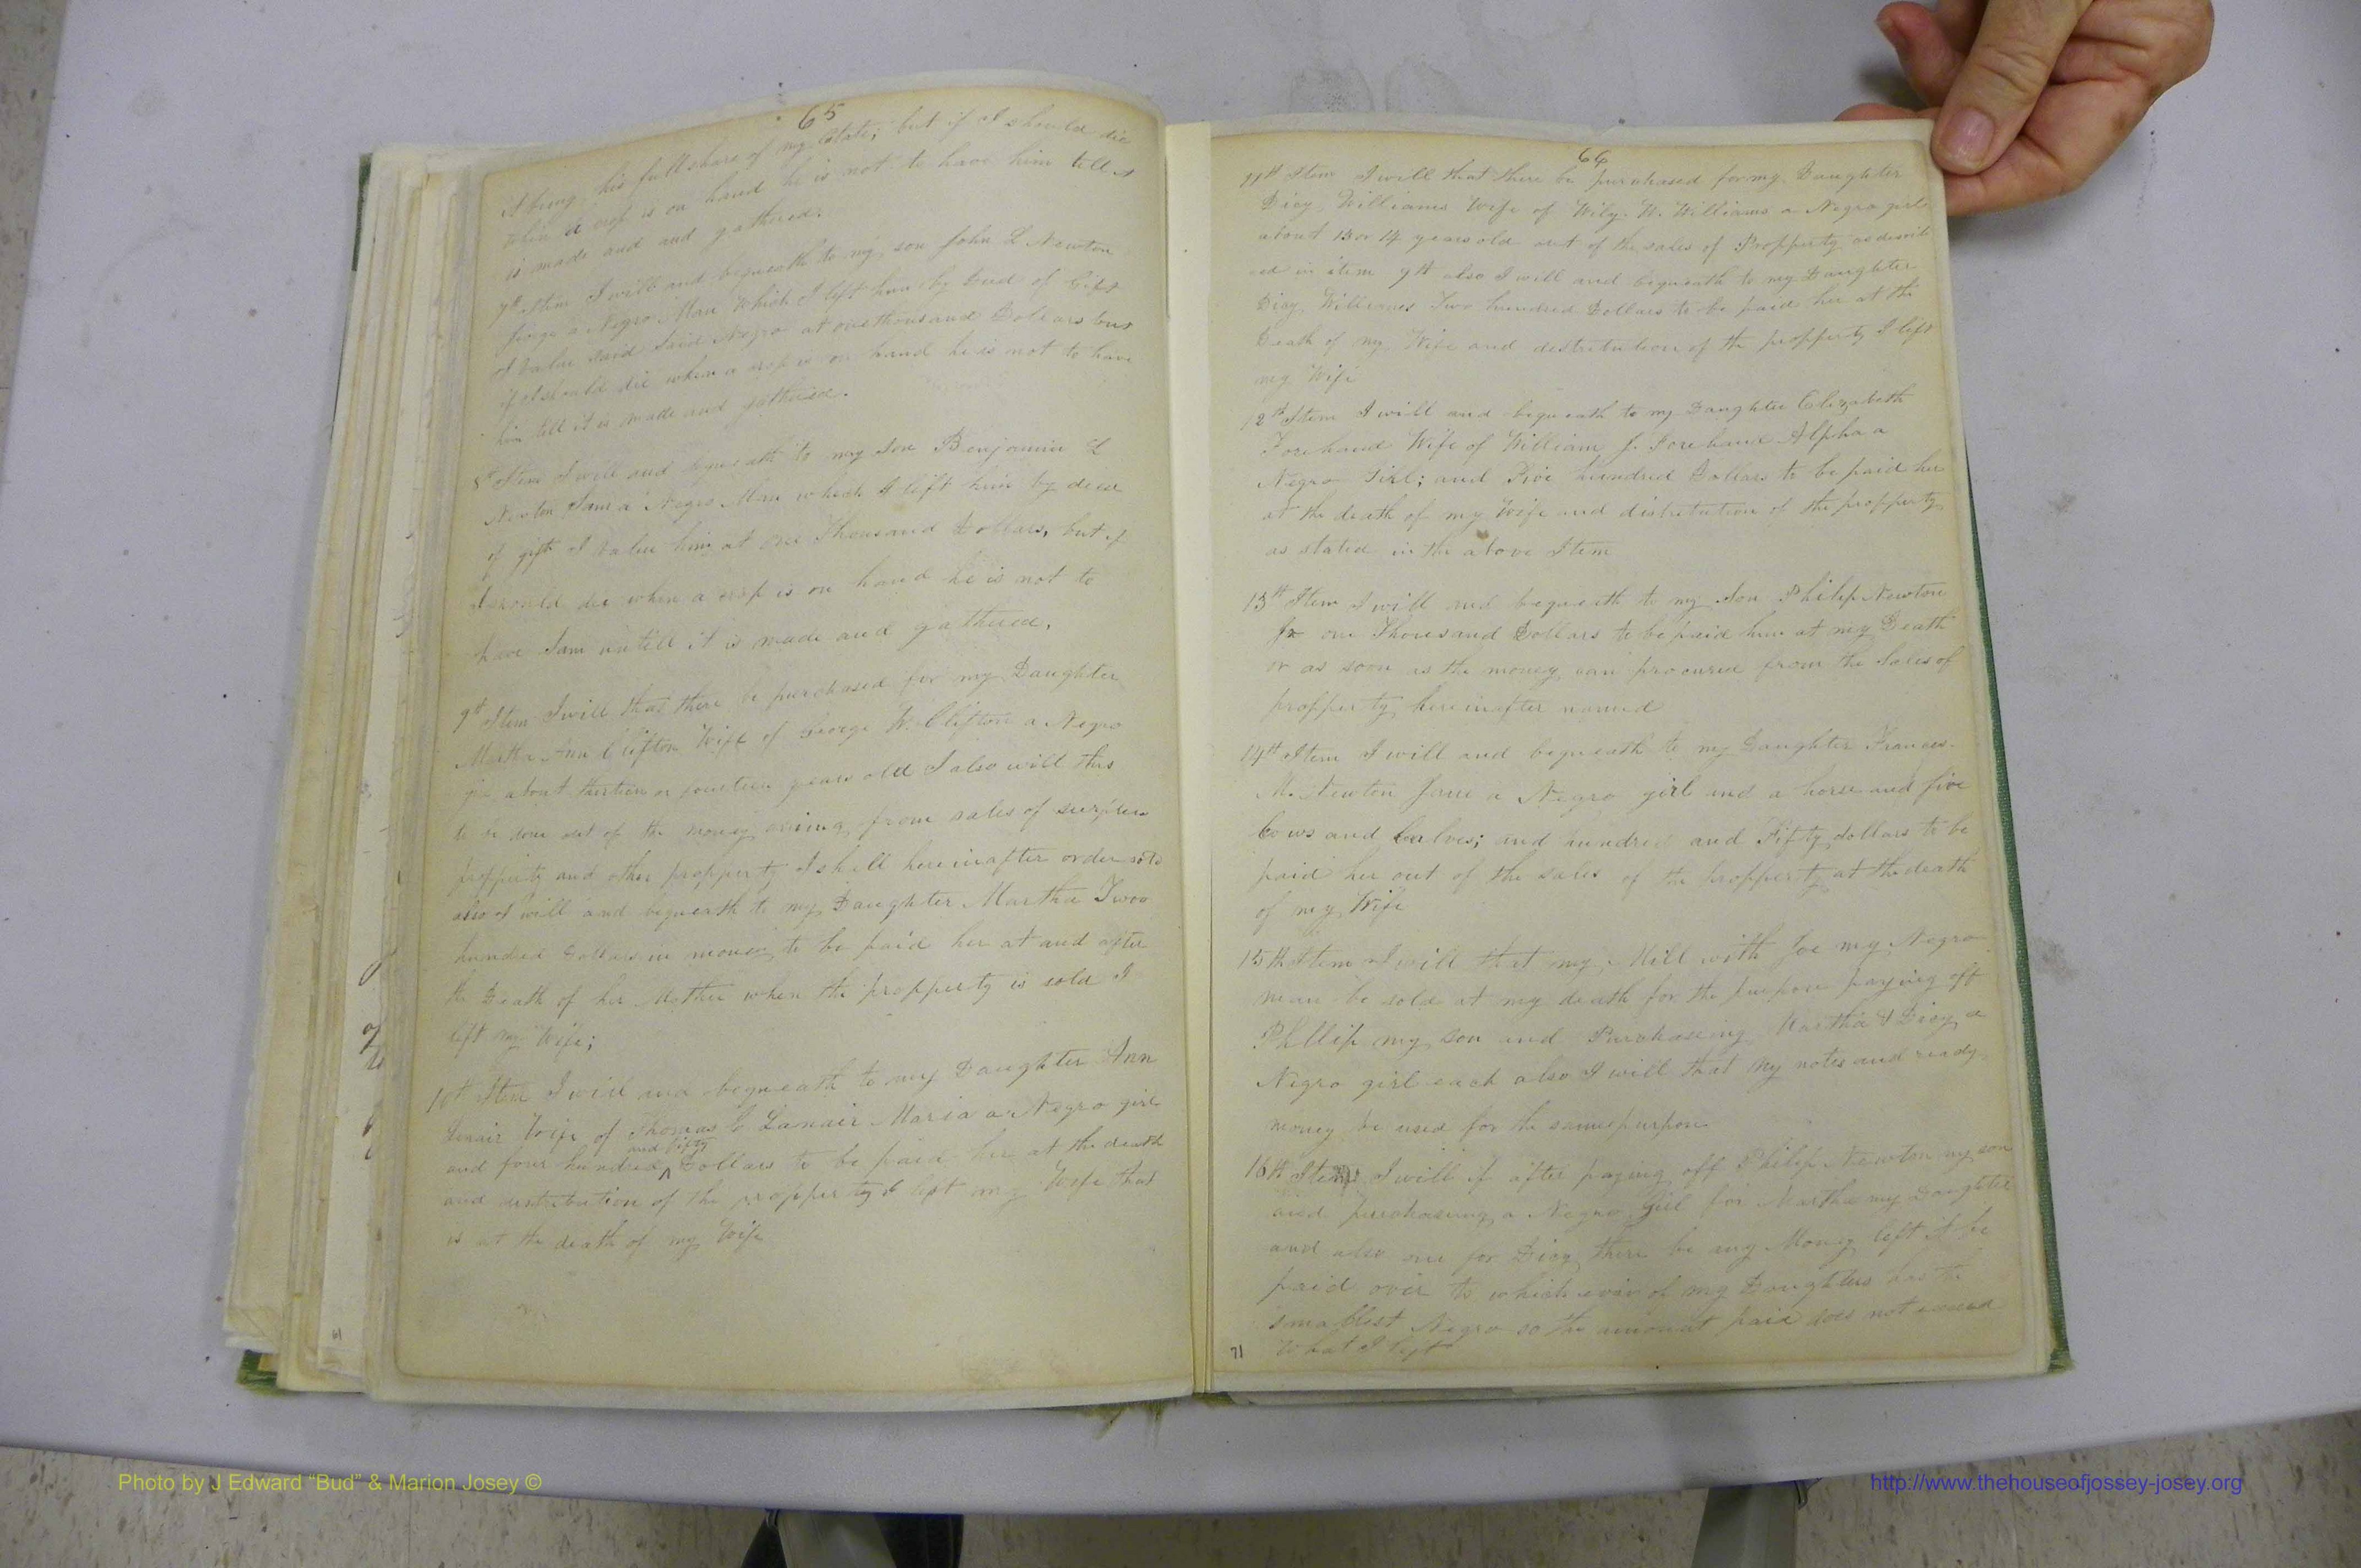 65
it being his full share of my Estate; but if I should die
when a crop is on hand he is not to have him till it
is made and and gathered.
7th Item I will and bequeath to my son John L Newton
a Negro Man Which I left him by Deed of Gift
I value said said Negro at one thousand Dollars but
if I should die when a crop is on hand he is not to have
him till it is made and gathered.
8th Item I will and bequeath to my Son Benjamin L
Newton Sam a Negro Man which I left him by deed
of gift I value him at one Thousand Dollars, but if
I should die when a crop is on hand he is not to
have Sam untill it is made and gathered.
9th Item I will that there be purchased for my Daughter
Martha Ann Clifton Wife of George W. Clifton a Negro
about thirteen or fourteen years old I also will this
to be done out of the money arising from sales of surplus
propperty and other propperty I shall hereinafter order sold
also I will and bequeath to my Daughter Martha Twoo
hundred Dollars in money to be paid her at and after
the Death of her Mother when the propperty is sold I
left my Wife;
10th Item I will and bequeath to my Daughter Ann
Lanair Wife of Thomas C Lanair Maria a Negro girl
and fifty
and four hundred ^ Dollars to be paid her at the death
and distribution of the propperty I left my Wife that
is at the death of my Wife
66
11th Item I will that there be purchased for my Daughter
Dicy Williams Wife of Wily. W. Williams a Negro girl
about 13 or 14 years old out of the sales of Propperty as describ
ed in item 9th also I will and bequeath to my Daughter
Dicy Williams Two hundred Dollars to be paid her at the
Death of my Wife and distritution of the propperty I left
my Wife
12th Item I will and bequeath to my Daughter Elizabeth
Forehand Wife of William J. Forehand Alpha a
Negro Girl; and Five hundred Dollars to be paid her
at the death of my Wife and distritution of the propperty
as stated in the above Item
13th Item I will and bequeath to my Son Philip Newton
Jr one Thousand Dollars to be paid him at my Death
or as soon as the money can procured from the Sales of
propperty hereinafter named
14th Item I will and bequeath to my Daughter Frances.
M. Newton Jane a Negro girl and a horse and five
Cows and Calves; and hundred and Fifty dollars to be
paid her out of the sales of the propperty at the death
of my Wife
15th Item I will that my Mill with Joe my Negro
man be sold at my death for the purpose paying off
Phllip my son and Purchasing Martha & Dicy a
Negro girl each also I will that my notes and ready
money be used for the same purpose
16th Item I will if after paying off Philip Newton my son
and purchasing a Negro Girl for Martha my Daughter
and also one for Dicy there be any Money left it be
paid over to which ever of my Daughters has the
smallest Negro so the amount paid does not exceed
What I left
71
61
Photo by J Edward “Bud” & Marion Josey ©
http://www.thehouseofjossey-josey.org